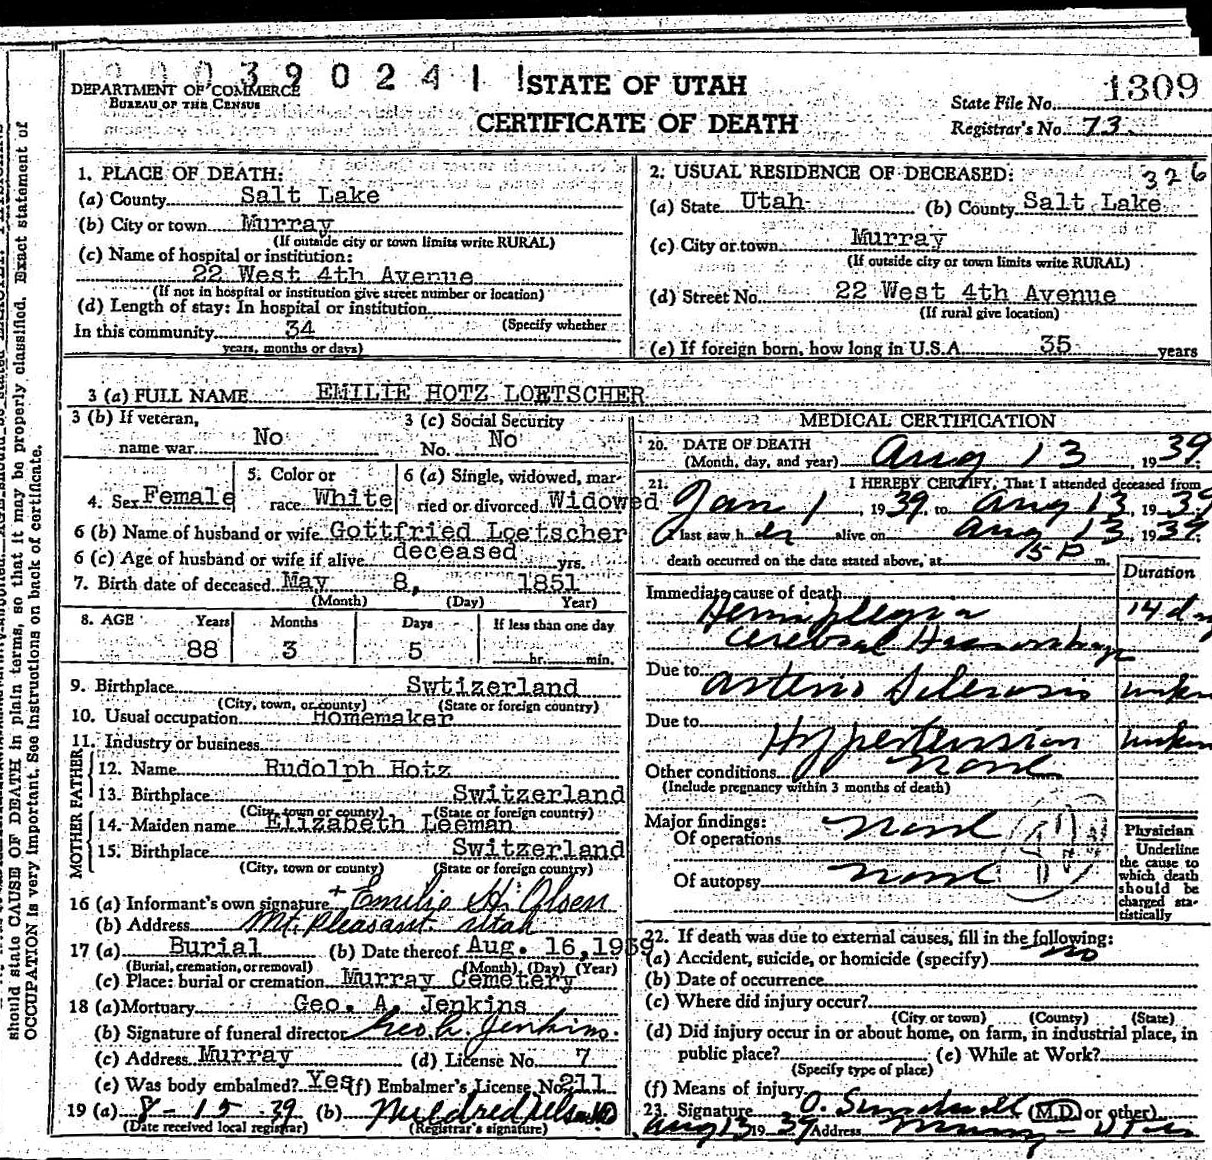 000390241 1 STATE OF UTAH 1309
DEPARTMENT OF COMMERCE
BUREAU OF THE CENSUS
CERTIFICATE OF DEATH
State File No.
Registrar's No. 73.
326
1. PLACE OF DEATH:
(a) County Salt Lake
(b) City or town Murray
(If outside city or town limits write RURAL)
(c) Name of hospital or institution:
22 West 4th Avenue
(If not in hospital or institution give street number or location)
(d) Length of stay: In hospital or institution
(Specify whether
In this community 34
years, months or days)
2. USUAL RESIDENCE OF DECEASED:
(a) State Utah (b) County Salt Lake
(c) City or town Murray
(If outside city or town limits write RURAL)
(d) Street No. 22 West 4th Avenue
(If rural give location)
(e) If foreign born, how long in U.S.A. 35 years
3 (a) FULL NAME EMILIE HOTZ LOETSCHER
3 (b) If veteran,
name war No
3 (c) Social Security
No. No
4. Sex Female
5. Color or
race White
6 (a) Single, widowed, mar-
ried or divorced Widowed
6 (b) Name of husband or wife Gottfried Loetscher
6 (c) Age of husband or wife if alive deceased yrs.
7. Birth date of deceased May 8, 1851
(Month) (Day) Year)
8. AGE Years Months Days If less than one day
88 3 5 hr. min.
9. Birthplace Swtizerland
(City, town, or county) (State or foreign country)
10. Usual occupation Homemaker
11. Industry or business
FATHER
12. Name Rudolph Hotz
13. Birthplace Switzerland
(City, town or county) (State or foreign country)
MOTHER
14. Maiden name Elizabeth Leeman
15. Birthplace Switzerland
(City, town or county) (State or foreign country)
16 (a) Informant's own signature + Emilie H. Olsen
(b) Address Mt. Pleasant Utah
17 (a) Burial (b) Date thereof Aug. 16, 1939
(Burial, cremation, or removal) (Month) (Day) (Year)
(c) Place: burial or cremation Murray Cemetery
18 (a) Mortuary Geo. A. Jenkins
(b) Signature of funeral director Geo. A. Jenkins.
(c) Address Murray (d) License No. 7
(e) Was body embalmed? Yes (f) Embalmer's License No. 211
19 (a) 8-15-39 (b) Mildred
(Date received local registrar) (Registrar's signature)
MEDICAL CERTIFICATION
20. DATE OF DEATH
(Month, day, and year) Aug 13, 1939
21. I HEREBY CERTIFY, That I attended deceased from
Jan 1, 1939, to Aug 13, 1939
I last saw her alive on Aug 13, 1939;
death occurred on the date stated above, at 15 P m.
Duration
Immediate cause of death
Hemiplegia 14 day
Cerebral Hemorrhage
Due to arterio Sclerosis unkn
Due to Hypertension unkn
Other conditions none
(Include pregnancy within 3 months of death)
Major findings:
Of operations none
Of autopsy none
Physician
Underline
the cause to
which death
should be
charged sta-
tistically
22. If death was due to external causes, fill in the following:
(a) Accident, suicide, or homicide (specify) no
(b) Date of occurrence
(c) Where did injury occur?
(City or town) (County) (State)
(d) Did injury occur in or about home, on farm, in industrial place, in
public place? (e) While at Work?
(Specify type of place)
(f) Means of injury
23. Signature O. Sundwall (M.D. or other)
Aug 13 1939 Address Murray - Utah
should state CAUSE OF DEATH in plain terms, so that it may be properly classified. Exact statement of
OCCUPATION is very important. See instructions on back of certificate.